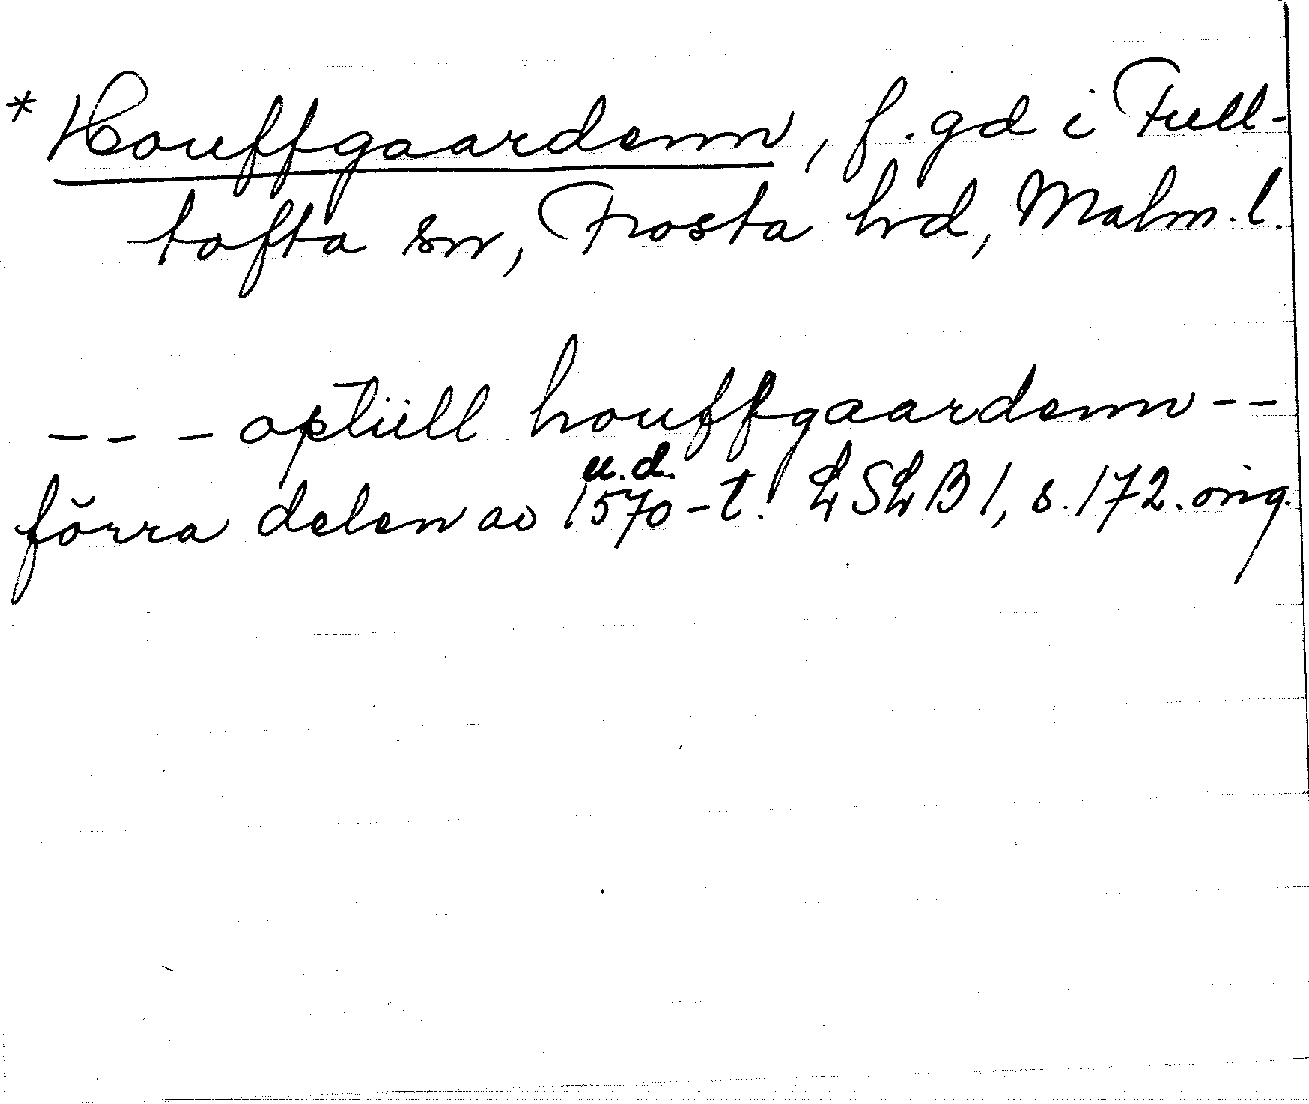 * Houffgaardenn, f. gd i Full-
tofta sn, Frosta hd, Malm. l.
- - - optiill houffgaardenn - -
u. d.
förra delen av 1570-t. LSLB 1, s. 172. orig.